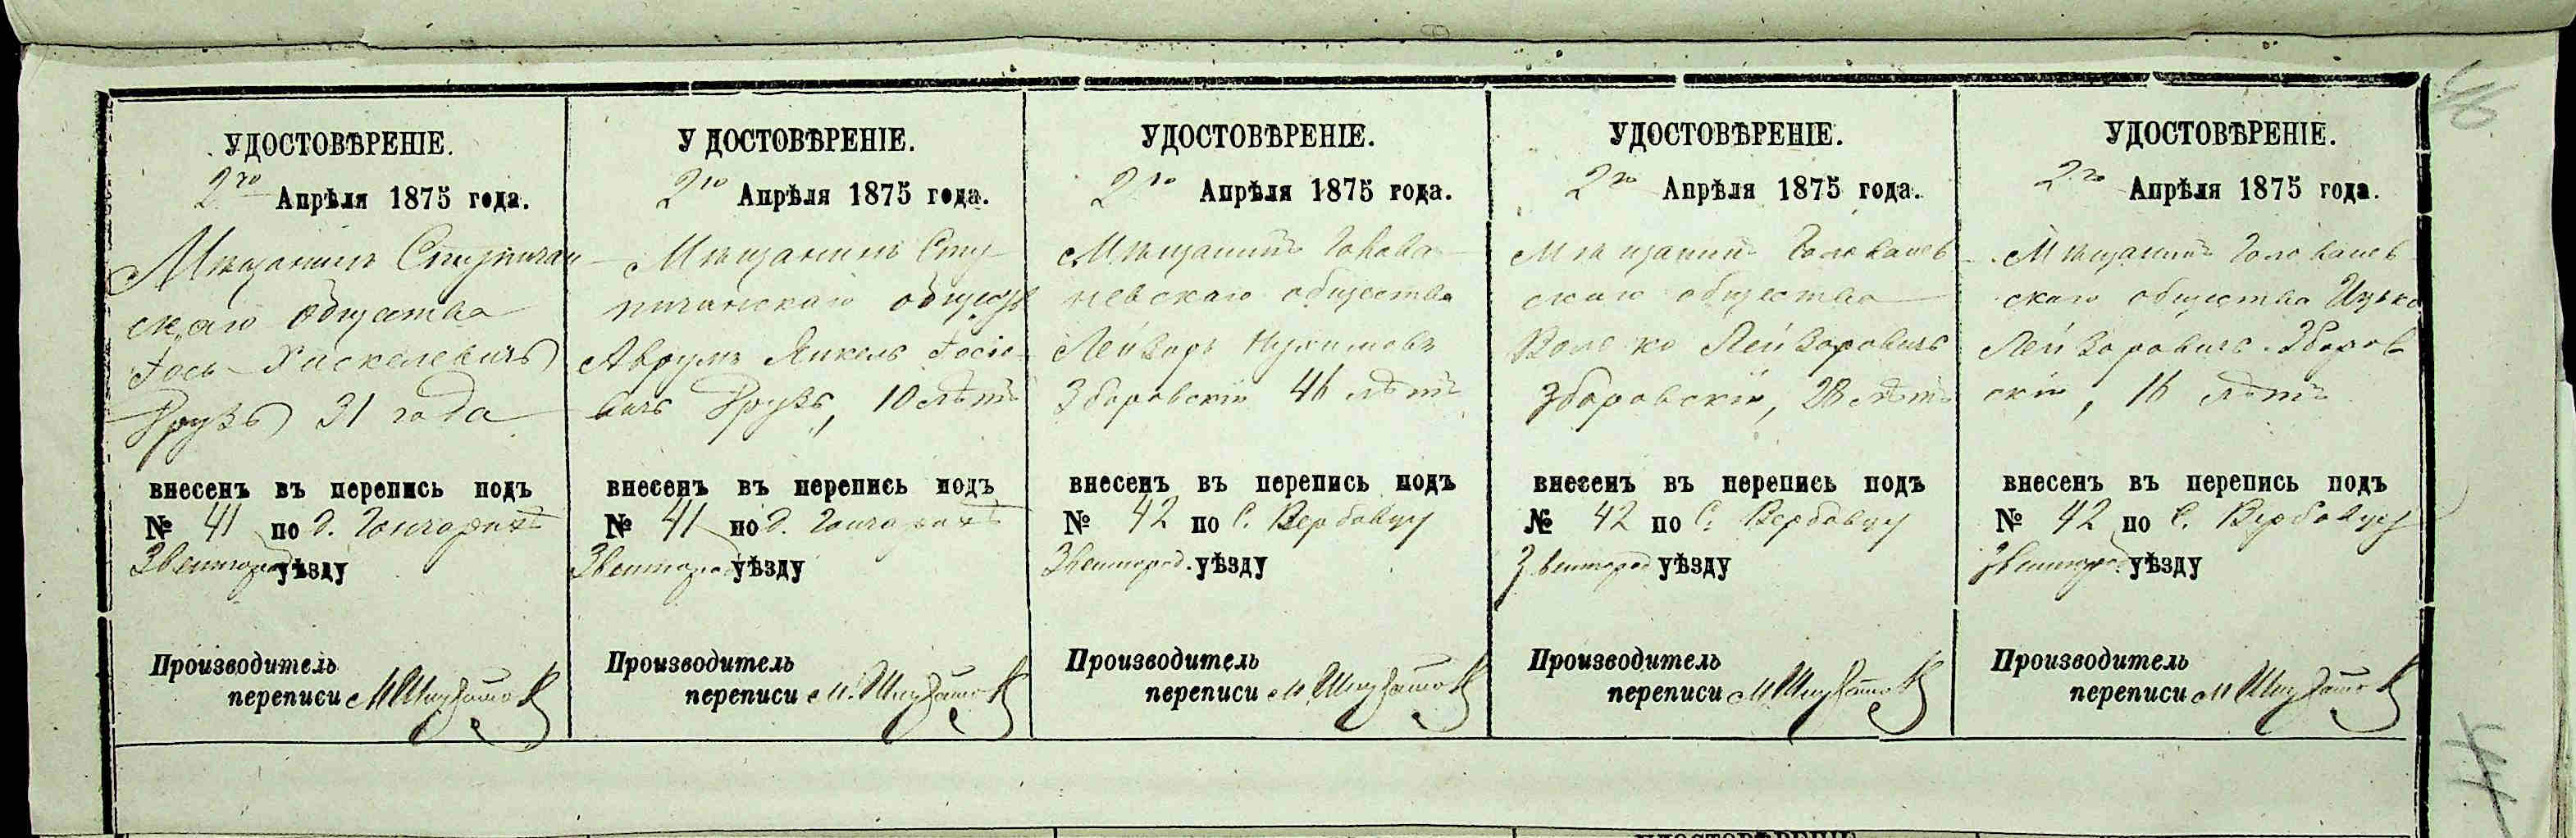 46
УДОСТОВѢРЕНІЕ.
2го Апрѣля 1875 года.
Мѣщанинъ Ступичан
скаго общества
Іось Хаскелевичъ
Друзъ 31 года
внесенъ въ перепись подъ
№ 41 по д. Гончарихѣ
Звенигород уѣзду
Производитель
переписи М
УДОСТОВѢРЕНІЕ.
2го Апрѣля 1875 года.
Мѣщанинъ Сту
пичанскаго общеср
Аврумъ Янкель Іосіо-
вичъ Друзъ, 10 лѣтъ
внесенъ въ перепись подъ
№ 41 по д. Гончарихѣ
Звенигород уѣзду
Производитель
переписи М.
УДОСТОВѢРЕНІЕ.
2го Апрѣля 1875 года.
Мѣщанинъ Голова
невскаго общества
Лейзоръ Нухимовъ
Зборовскій 46 лѣтъ
внесенъ въ перепись подъ
№ 42 по С. Вербовцу
Звенигород. уѣзду
Производитель
переписи М.
УДОСТОВѢРЕНІЕ.
2го Апрѣля 1875 года.
Мѣщанинъ Голованев
скаго общества
Волько Лейзоровичъ
Зборовскій, 28 лѣтъ
внесенъ въ перепись подъ
№ 42 по С. Вербовцу
Звенигород уѣзду
Производитель
переписи М
УДОСТОВѢРЕНІЕ.
2го Апрѣля 1875 года.
Мѣщанинъ Голованев
скаго общества Ицько
Лейзоровичъ Зборов
скій, 16 лѣтъ
внесенъ въ перепись подъ
№ 42 по С. Вербовцу
Звенигород уѣзду
Производитель
переписи М